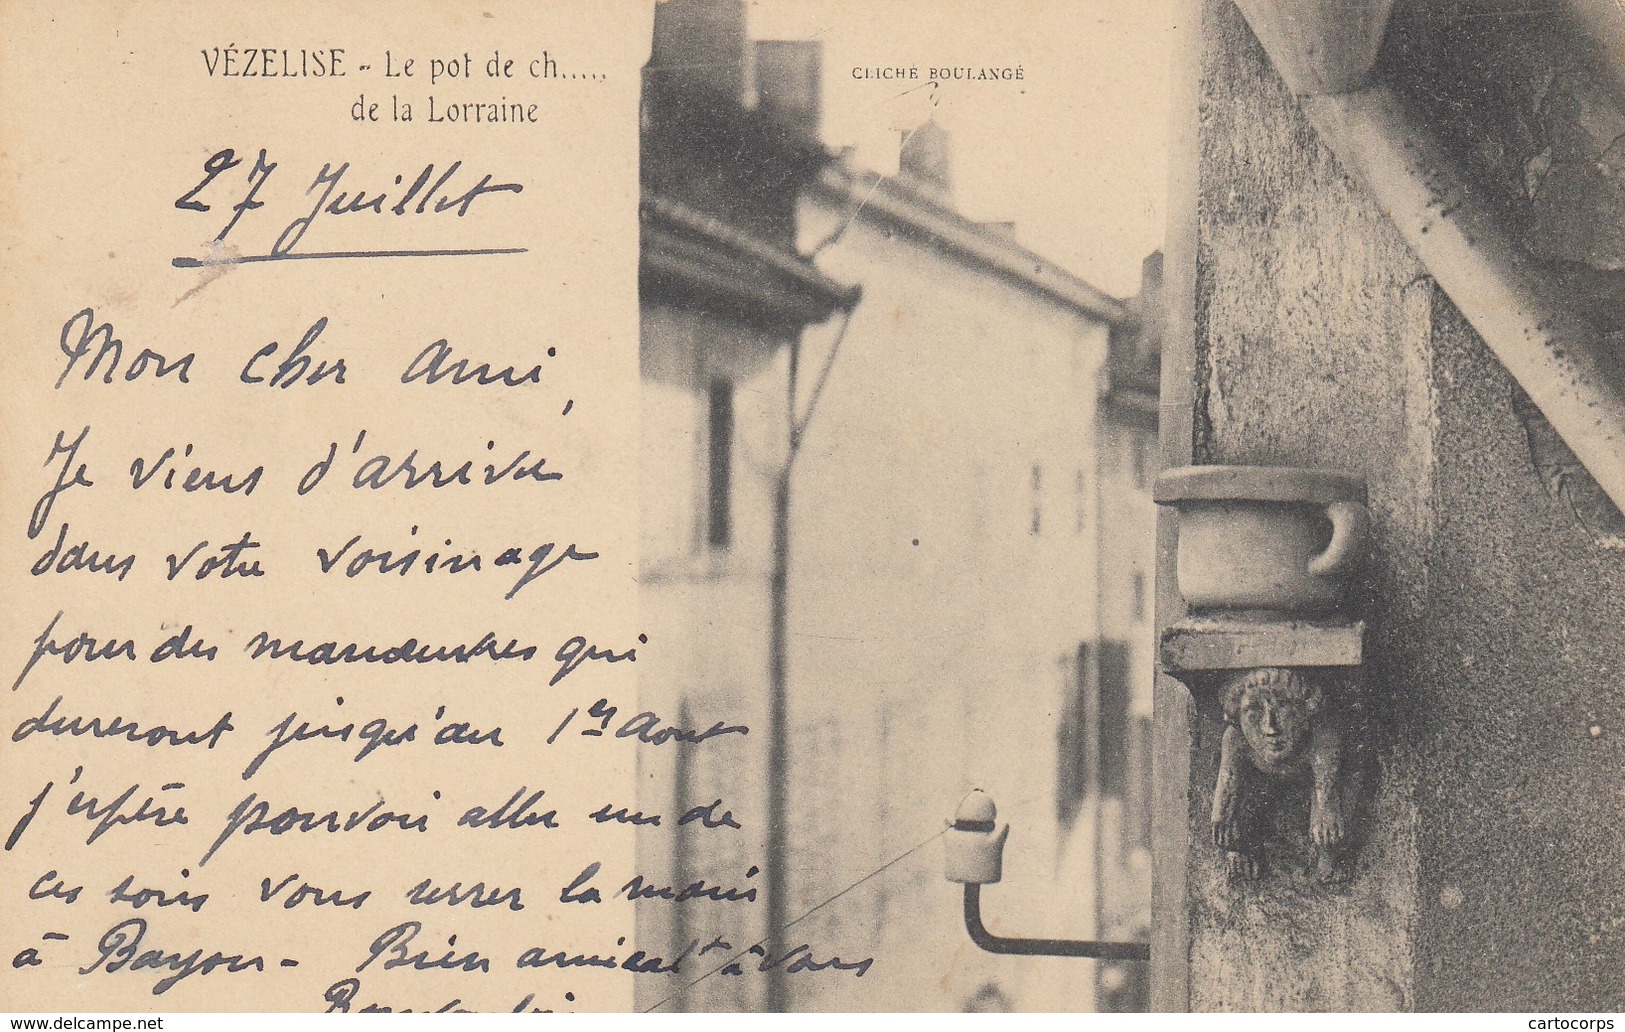 VÉZELISE - Le pot de ch.....
de la Lorraine
CLICHÉ BOULANGÉ
27 Juillet
Mon cher ami,
Je viens d'arriver
dans votre voisinage
pour des manœuvres qui
dureront jusqu'au 1er Aout
j'espère pouvoir aller un de
ces soirs vous serrer la main
à Bayon - Bien amicalt à vous
cartocorps
Delcampe.net